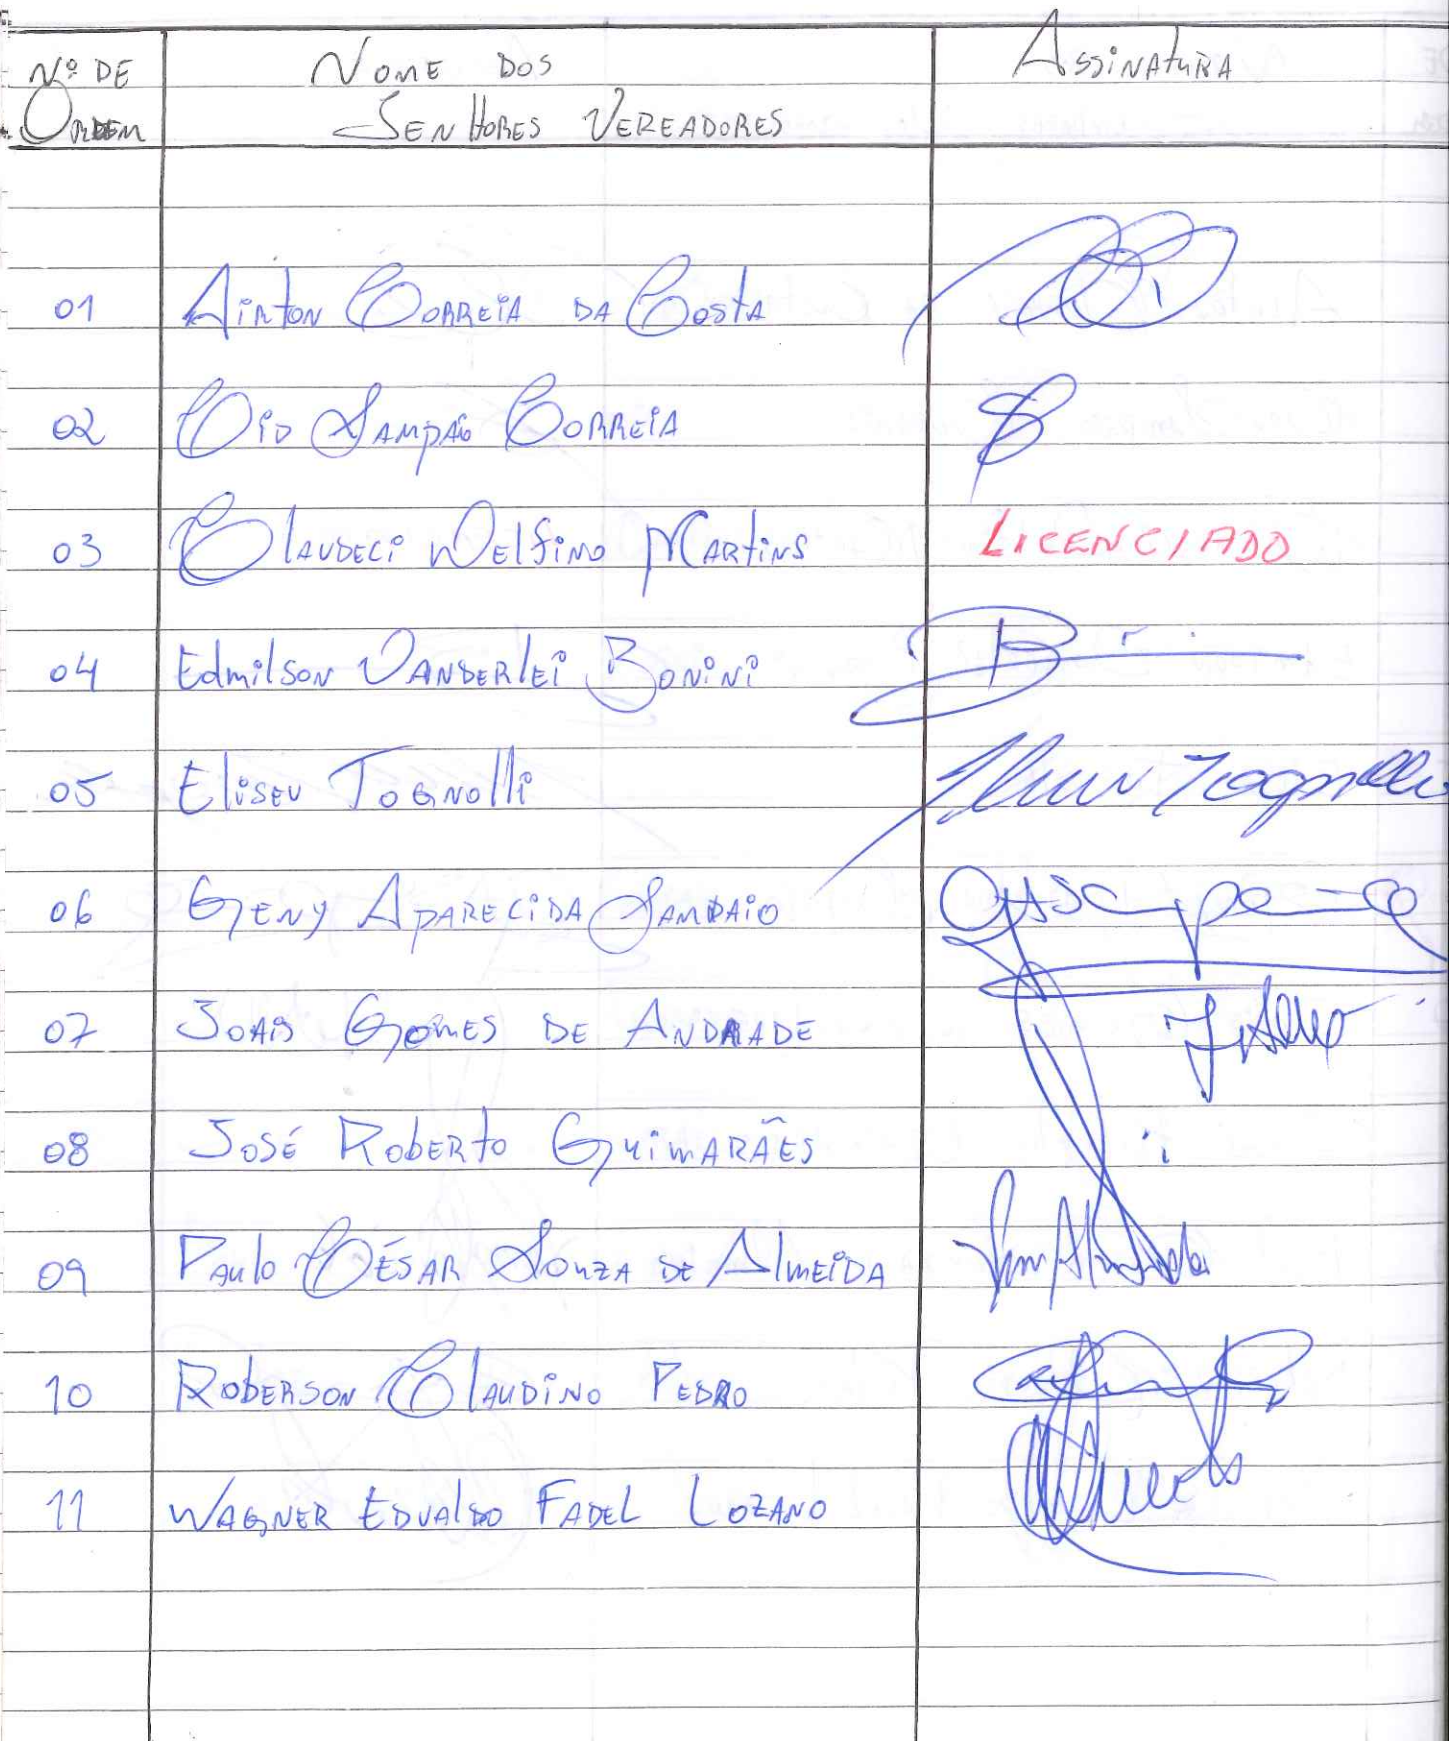 Nº DE NOME DOS ASSINATURA
ORDEM SENHORES VEREADORES
01 AIRTON CORREIA DA COSTA
02 CID SAMPAIO CORREIA
03 CLAUDECI DELFINO MARTINS LICENCIADO
04 Edmilson VANDERLEI BONINI
05 ELISEU TOGNOLLI Tognolli
06 GENY APARECIDA SAMPAIO
07 GOMES DE ANDRADE
08 JOSÉ ROBERTO GUIMARÃES
09 PAULO CÉSAR SOUZA DE ALMEIDA
10 ROBERSON CLAUDINO PEDRO
11 WAGNER EDVALDO FADEL LOZANO